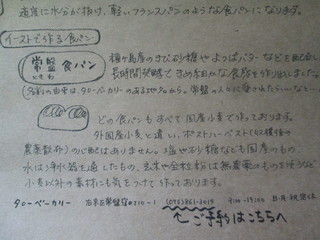 適度に水分が抜け、軽いフランスパンのような食パンになります。
イーストで作る食パン
常盤食パン
ときわ
種子島産のきびざとう糖やよつばバターなどを配合し
長時間発酵できめ細かな食感を作り出しました。
(名前の由来は、タローベーカリーのある
どの食パンもすべて国産小麦で作っております。
外国産小麦と違い、ポストハーベスト(収穫後の
農薬散布)の心配はありません。塩やざら糖なども国産のもの
水は浄水器を通したもの、玄米や全粒粉は無農薬のものを使うなど
小麦以外の素材にも気をつけて作っております。
タローベーカリー
9:00~19:00
ご予約はこちらへ